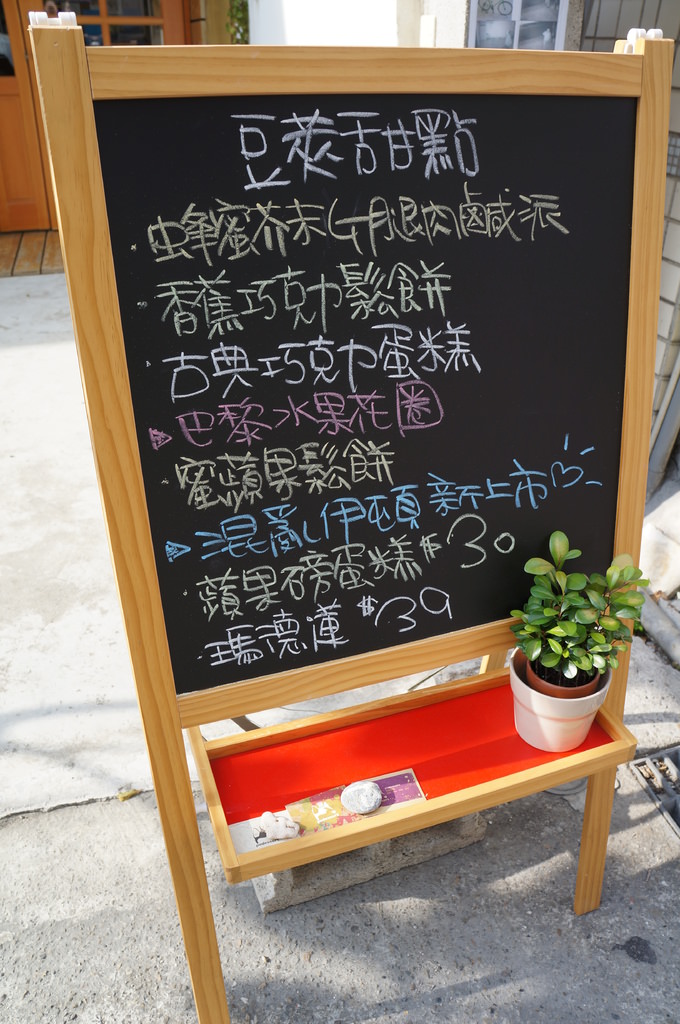 豆蔻甜點
蜂蜜芥末火腿肉鹹派
香蕉巧克力鬆餅
古典巧克力蛋糕
巴黎水果花圈
蜜蘋果鬆餅
混亂伊頓 新上市
蘋果磅蛋糕 $30
瑪德蓮 $39